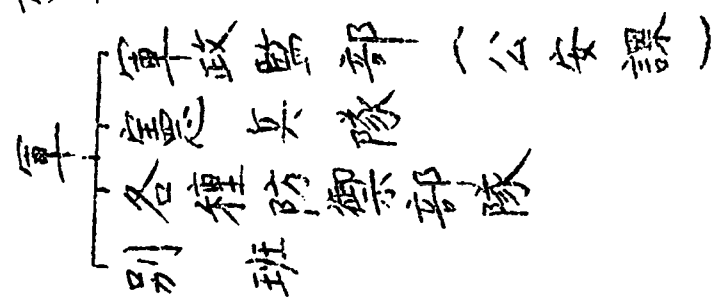 軍
軍政監部（公安課）
憲兵隊
各種防禦部隊
別班